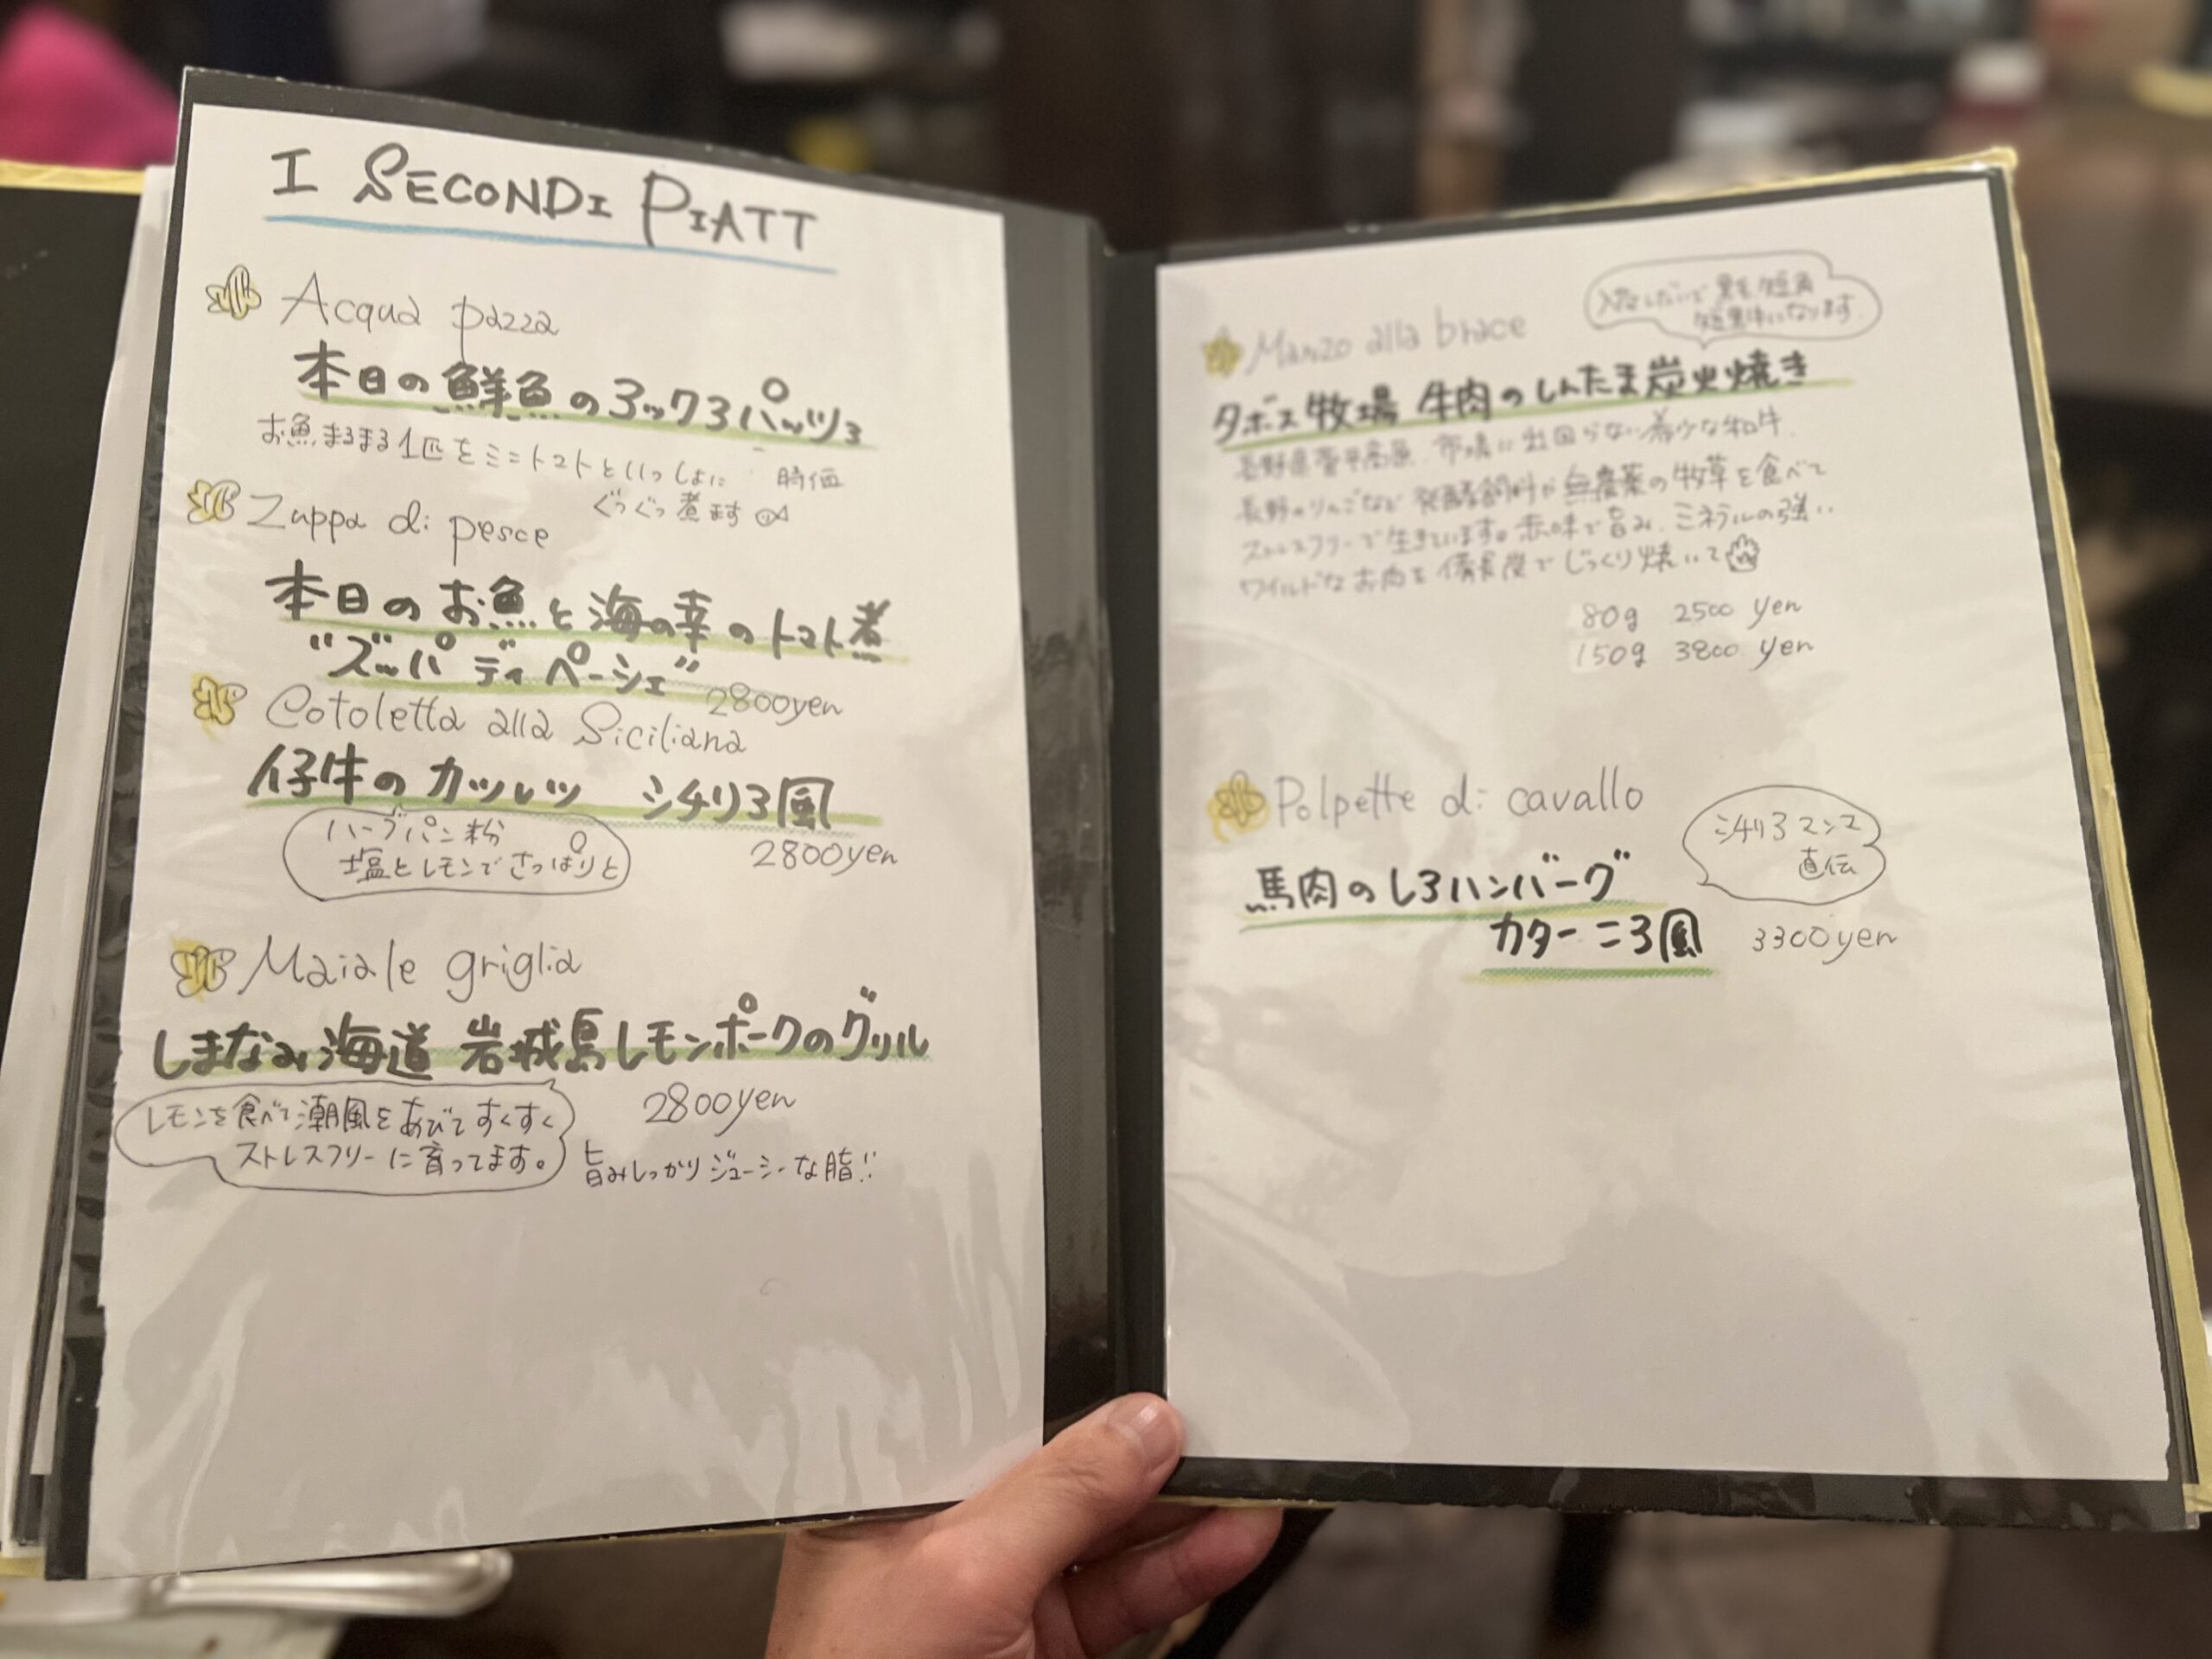 I SECONDI PIATT
Acqua pazza
本日の鮮魚のアックアパッツァ
お魚まるまる1匹をミニトマトといっしょに
ぐつぐつ煮ます
時価
Zuppa di pesce
本日のお魚と海の幸のトマト煮
"ズッパ ディ ペーシェ"
2800yen
Cotoletta alla Siciliana
仔牛のカツレツ シチリア風
ハーブパン粉
塩とレモンでさっぱりと
2800yen
Maiale griglia
しまなみ海道 岩城島レモンポークのグリル
2800yen
レモンを食べて潮風をあびてすくすく
ストレスフリーに育ってます。
旨みしっかりジューシーな脂!!
Manzo alla brace
入荷しだいで
短黒牛になります。
ダボス牧場 牛肉のしんたま炭火焼き
長野県菅平高原、市場に出回らない希少な和牛、
長野のりんごなど発酵飼料や無農薬の牧草を食べて
ストレスフリーで生きています。赤味で旨み、ミネラルの強い
ワイルドなお肉を備長炭でじっくり焼いて
80g 2500 yen
150g 3800 yen
Polpette di cavallo
シチリアマンマ
直伝
馬肉のしろハンバーグ
カターニア風
3300yen